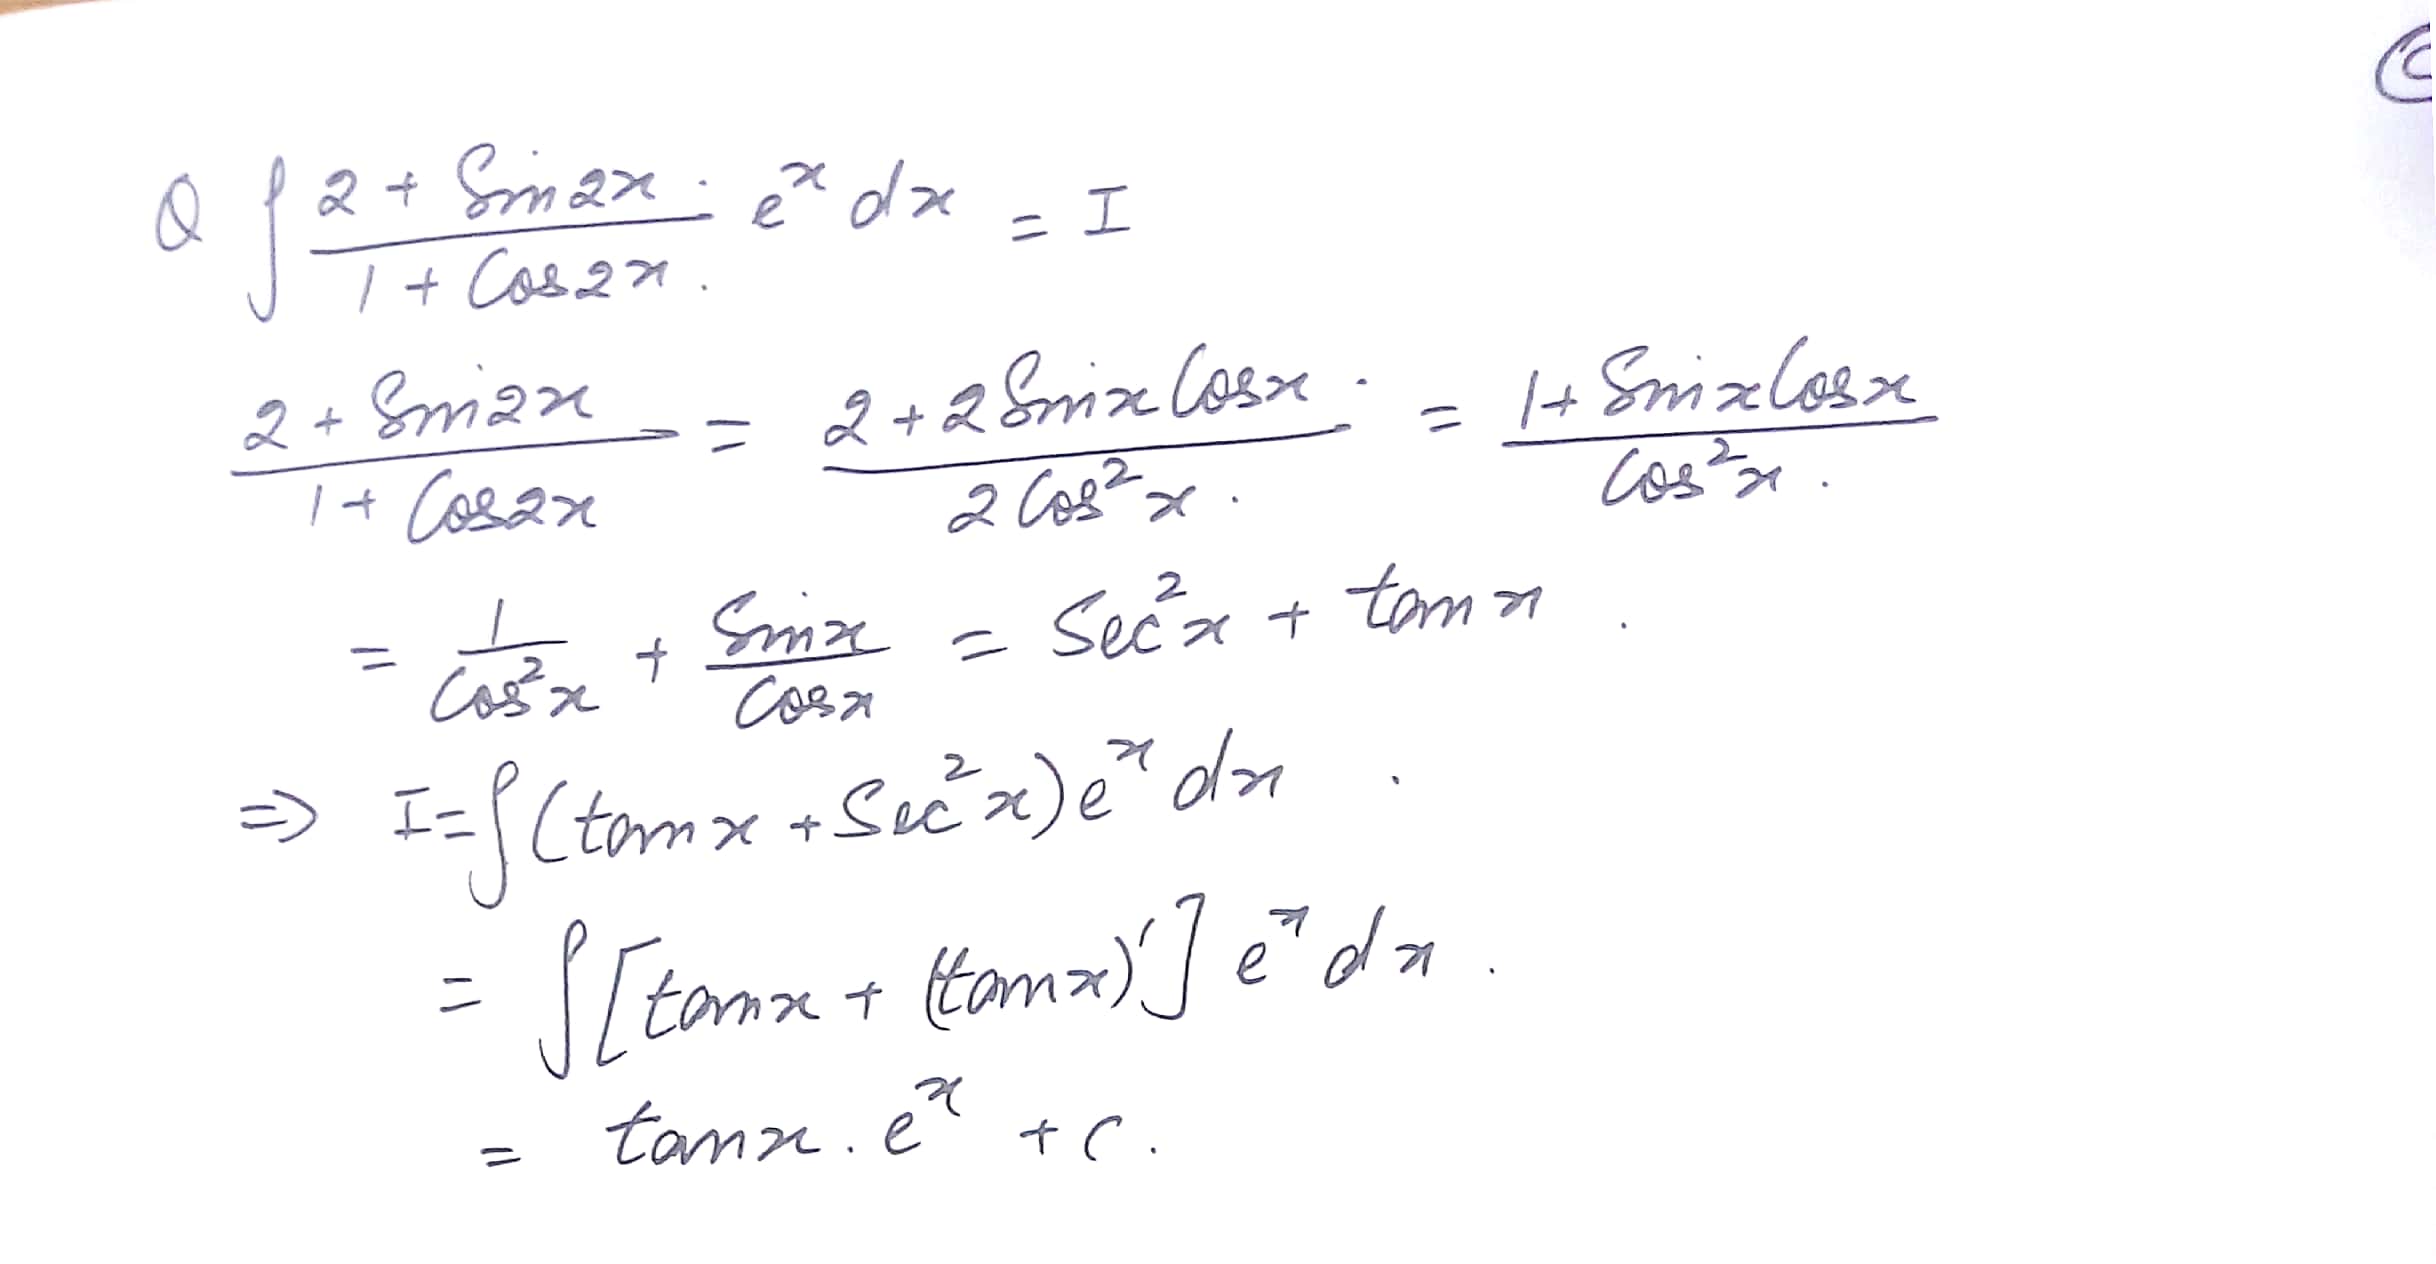 Q ∫ (2 + Sin2x)/(1 + Cos2x) . e^x dx = I
(2 + Sin2x)/(1 + Cos2x) = (2 + 2 Sinx Cosx)/(2 Cos²x) = (1 + Sinx Cosx)/(Cos²x)
= 1/(Cos²x) + Sinx/Cosx = Sec²x + tanx
=> I = ∫ (tanx + Sec²x) e^x dx
= ∫ [tanx + (tanx)'] e^x dx
= tanx . e^x + C.